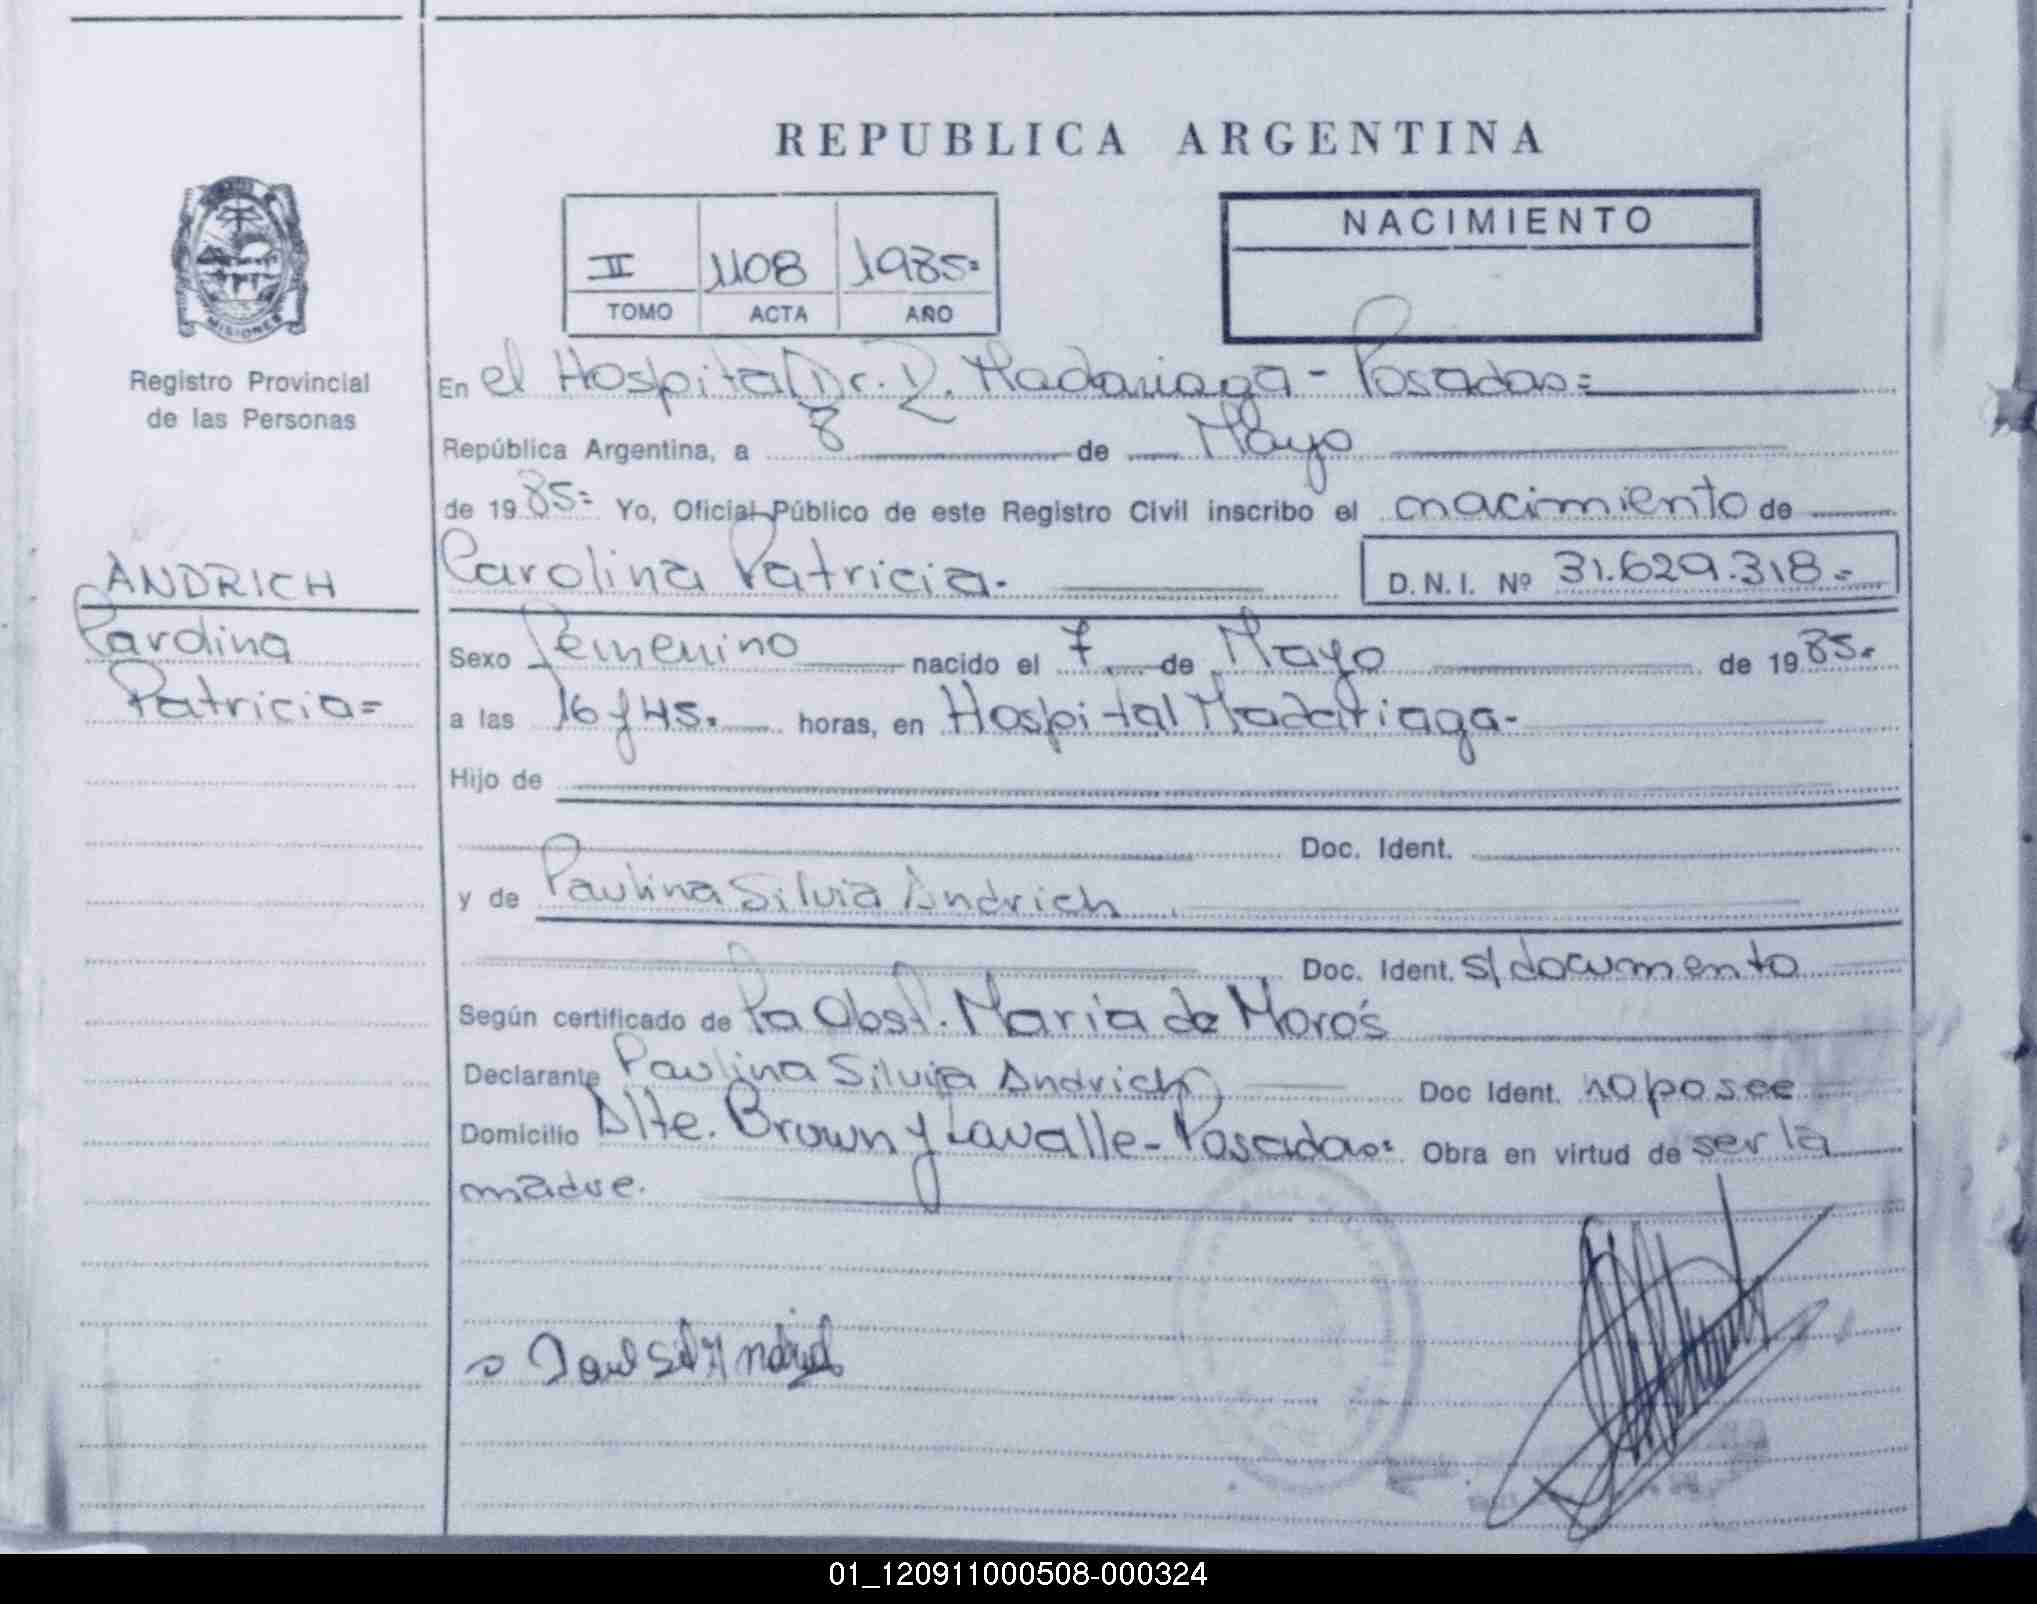 REPUBLICA ARGENTINA
II 1108 1985=
TOMO ACTA AÑO
NACIMIENTO
MISIONES
Registro Provincial
de las Personas
En el Hospital Dr. R. Madariaga - Posadas=
República Argentina, a 8 de Mayo
de 1985= Yo, Oficial Público de este Registro Civil inscribo el nacimiento de
ANDRICH
Carolina
Patricia=
Carolina Patricia.
D. N. I. Nº 31.629.318=
Sexo femenino nacido el 7 de Mayo de 1985.
a las 16 y 45. horas, en Hospital Madariaga-
Hijo de
Doc. Ident.
y de Paulina Silvia Andrich
Doc. Ident. s/documento
Según certificado de la Obst. Maria de Moros
Declarante Paulina Silvia Andrich Doc Ident. no posee
Domicilio Alte. Brown y Lavalle - Posadas: Obra en virtud de ser la
madre.
01_120911000508-000324